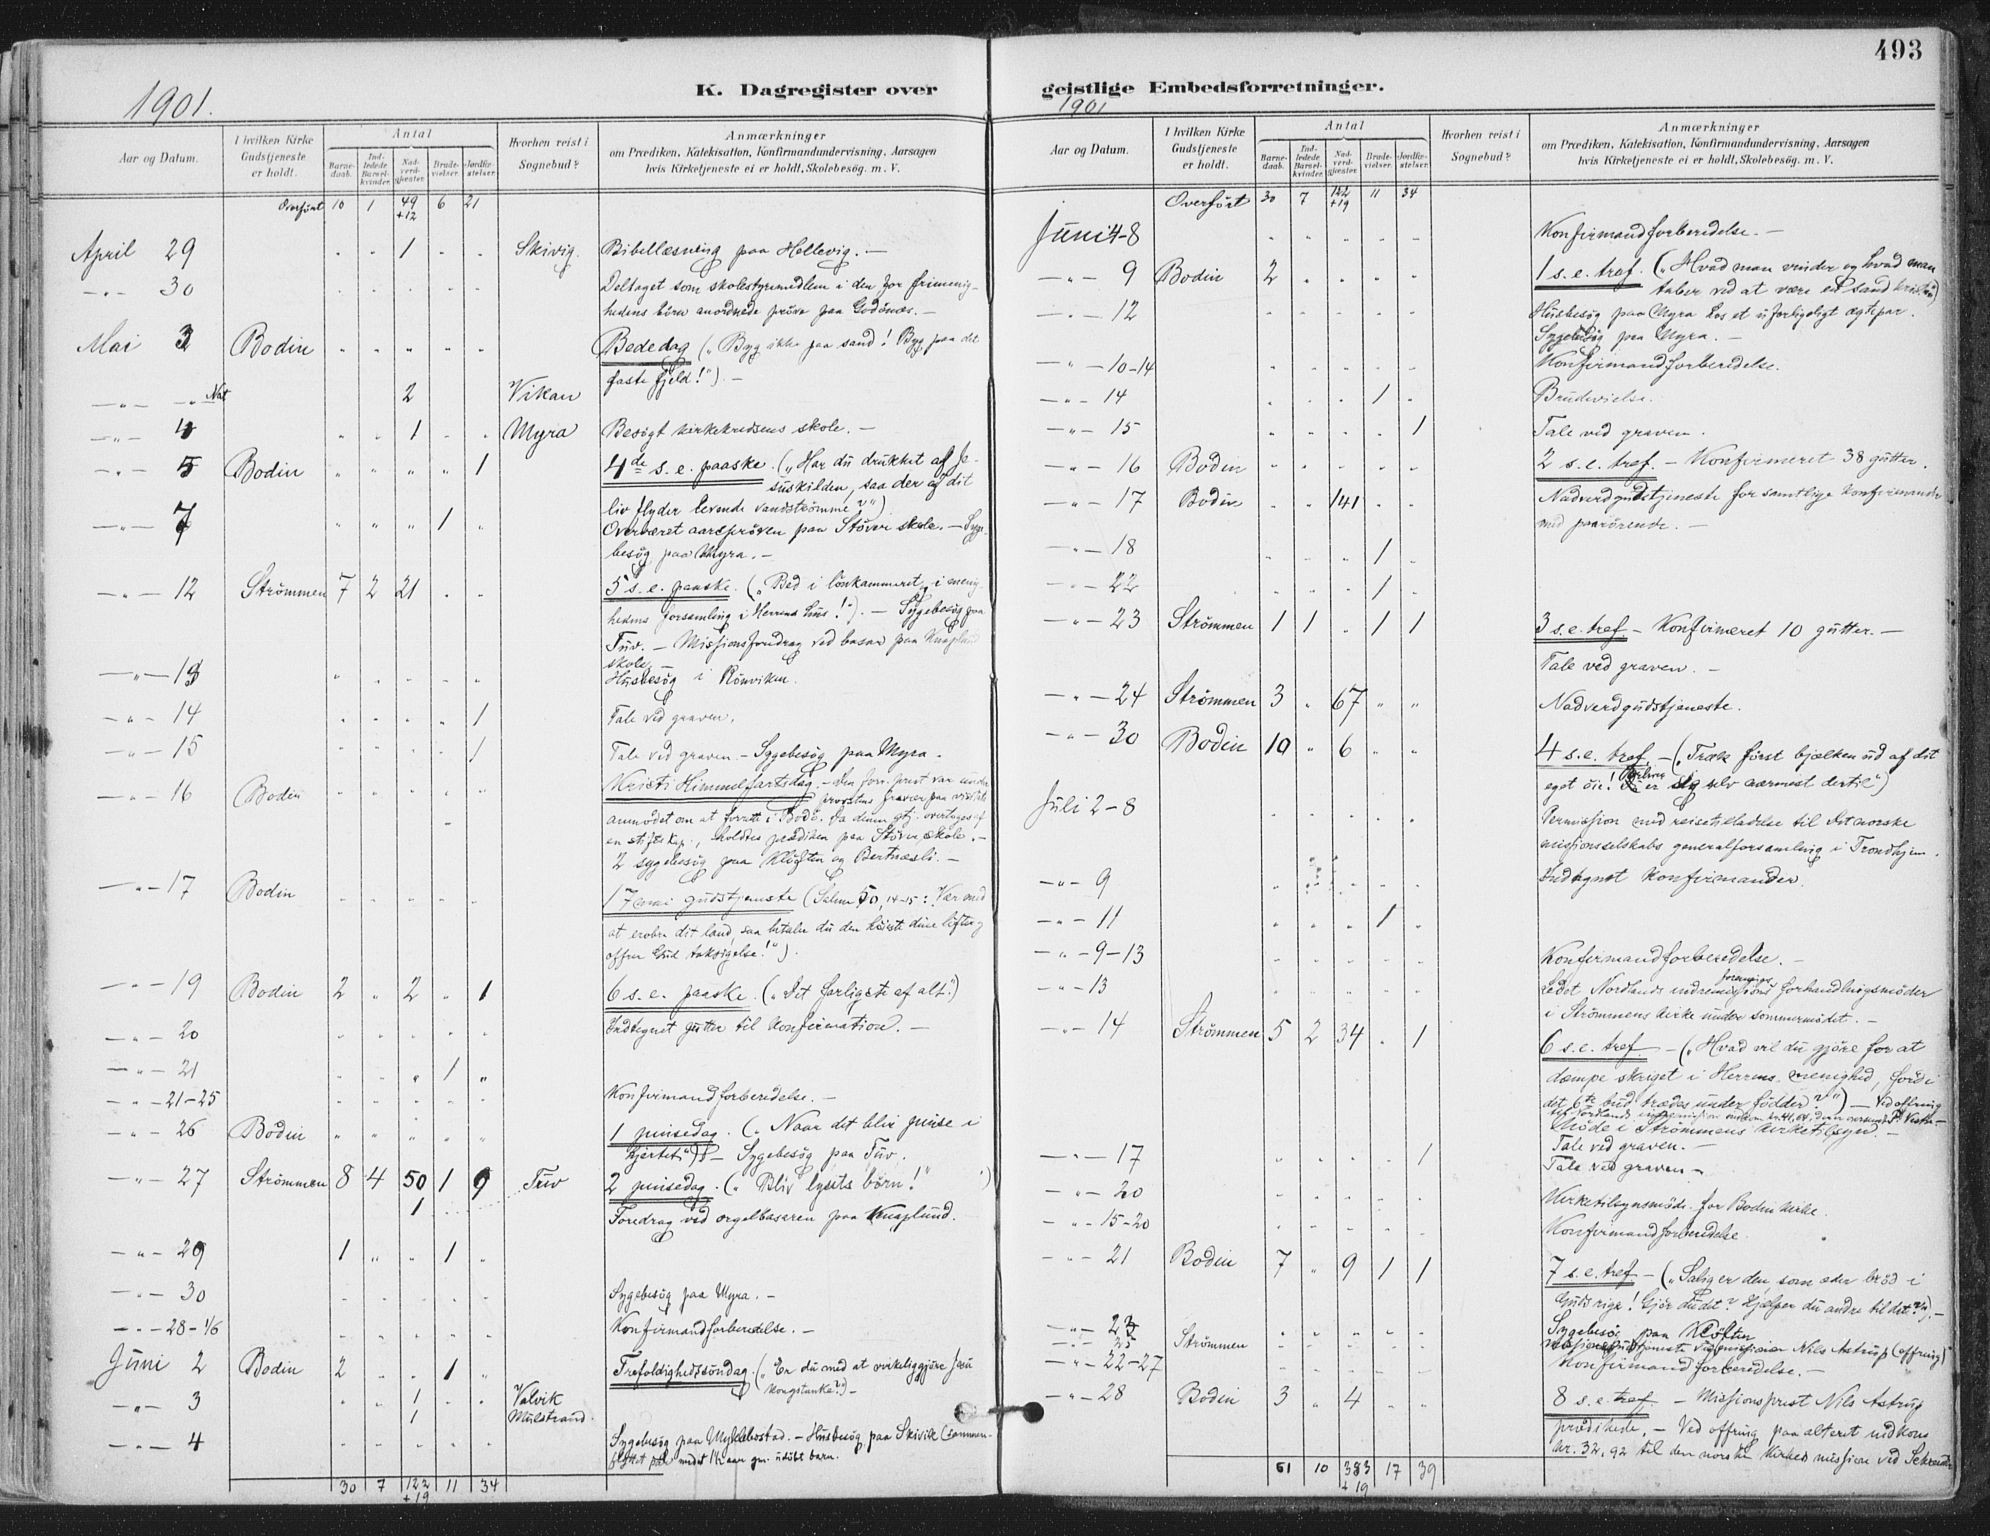 493
K. Dagregister over geistlige Embedsforretninger.
1901.
Aar og Datum. I hvilken Kirke Gudstjeneste er holdt. Antal Barnedaab. Indledede Barselkvinder. Nadverdgjester. Brudevielser. Jordfæstelser. Hvorhen reist i Sognebud? Anmærkninger om Prædiken, Katekisation, Konfirmandundervisning, Aarsagen hvis Kirketjeneste ei er holdt, Skolebesøg. m. V.
Overført 10 1 49 +12 6 21
April 29 " " 1 " " Skivig. Bibellæsning paa Hollevig. —
— " — 30 Deltaget som skolestyremedlem i den for frimenig-
hedens børn anordnede prøve paa Godønæs. —
Mai 3 Bodin " " " " " Bededag („Byg ikke paa sand! Byg paa det
faste fjeld!“). —
— " — " Nat 2 Vikan
— " — 4 " " 1 " " Myra Besøgt kirkekredsens skole. —
— " — 5 Bodin " " " " 1 4de s. e. paaske. („Har du drukket af Je-
suskilden, saa der af dit
liv flyder levende vandstrømme?“)
— " — 7 " " " 1 " Overværet aarsprøven paa Støver skole. — Syge-
besøg paa Myra. —
— " — 12 Strømmen 7 2 21 " " 5 s. e. paaske. („Bed i lønkammeret, i menig-
hedens forsamling i Herrens hus!“). — Sygebesøg paa
Tuv. — Missionsforedrag ved basar paa Knaplund
skole. —
— " — 13 Husbesøg i Rønviken.
— " — 14 " " " " 1 Tale ved graven.
— " — 15 " " " " 1 Tale ved graven — Sygebesøg paa Myra.
— " — 16 Bodin Kristi Himmelfartsdag. — Den forr. prest var under
provstens fravær paa visitats
anmodet om at forrette i Bodø. Da denne gtj. overtoges af
en stiftskap., holdtes prædiken paa Støver skole. —
2 sygebesøg paa Kløften og Bertnæsli. —
— " — 17 Bodin 17 mai gudstjeneste (Salme 50, 14-15: Vær med
at erobre dit land, saa betaler du den høieste dine løfter og
offrer Gud taksigelse!“).
— " — 19 Bodin 2 " 2 " 1 6 s. e. paaske. („Det farligste af alt.“)
— " — 20 Indtegnet gutter til Konfirmation. —
— " — 21 " " " 1 "
— " — 21-25 Konfirmandforberedelse. —
— " — 26 Bodin " " " " " 1 pinsedag. („Naar det blir pinse i
hjertet“) — Sygebesøg paa Tuv.
— " — 27 Strømmen 8 4 50 1 9 Tuv 2 pinsedag. („Bliv lysets børn!“)
1 Foredrag ved orgelbasaren paa Knaplund.
— " — 29 1 " " 1 "
— " — 30 Sygebesøg paa Myra. —
— " — 28-1/6 Konfirmandforberedelse. —
Juni 2 Bodin 2 " " 1 " Trefoldighedssøndag. („Er du med at virkeliggjøre Jesu
kongstanke?“) —
— " — 3 " " 1 " " Valvik
1 Mulstrand.
— " — 4 Sygebesøg paa Myklebostad. — Husbesøg paa Skivik (sammen-
30 7 122 +19 11 34
1901
Aar og Datum. I hvilken Kirke Gudstjeneste er holdt. Antal Barnedaab. Indledede Barselkvinder. Nadverdgjester. Brudevielser. Jordfæstelser. Hvorhen reist i Sognebud? Anmærkninger om Prædiken, Katekisation, Konfirmandundervisning, Aarsagen hvis Kirketjeneste ei er holdt, Skolebesøg. m. V.
Overført 30 7 122 +19 11 34
Juni 4-8 Konfirmandforberedelse. —
— " — 9 Bodin 2 " " " " 1 s. e. tref. („Hvad man vinder og hvad man
taber ved at være en sand kristen“)
— " — 12 Husbesøg paa Myra hos et uforligeligt ægtepar.
Sygebesøg paa Myra. —
— " — 10-14 Konfirmandforberedelse.
— " — 14 " " " 1 " Brudevielse.
— " — 15 " " " " 1 Tale ved graven.
— " — 16 Bodin " " " " " 2 s. e. tref. — Konfirmeret 38 gutter.
— " — 17 Bodin " " 141 " " Nadverdgudstjeneste for samtlige konfirmander
med paarørende. —
— " — 18 " " " 1 "
— " — 22 " " " 1 "
— " — 23 Strømmen 1 1 " 1 1 3 s. e. tref — Konfirmeret 10 gutter. —
Tale ved graven. —
— " — 24 Strømmen 3 " 67 " " Nadverdgudstjeneste.
— " — 30 Bodin 10 " 6 " " 4 s. e. tref — („Træk først bjælken ud af dit
eget øie! Du er dig selv nærmest dertil“)
Juli 2-8 Permission med reisetilladelse til det norske
misjonsselskabs generalforsamling i Trondhjem.
— " — 9 Indtegnet konfirmander.
— " — 11 " " " 1 "
— " — 9-13 Konfirmandforberedelse. —
— " — 13 Ledet Nordlands indremissions forenings forhandlingsmøder
i Strømmens kirke under sommermødet. —
— " — 14 Strømmen 5 2 34 " 1 6 s. e. tref — („Hvad vil du gjøre for at
dæmpe skriget i Herrens menighed, fordi
det 6te bud trædes under fødder?“) — Ved offring
Møde i Strømmens kirketilsyn. —
— " — 17 " " " " 1 Tale ved graven. —
Tale ved graven —
— " — 20 Kirketilsynsmøde for Bodin kirke.
— " — 15-20 Konfirmandforberedelse
— " — 21 Bodin 7 " 9 1 1 7 s. e. tref — („Salig er den, som æder brød i
Guds rige! Gjør du det? Hjælper du andre til det?“). —
— " — 23 Sygebesøg paa Kløften
— " — 25 Strømmen Missionsgudstjeneste ved missionær Nils Astrup (offring)
— " — 22-27 Konfirmandforberedelse. —
— " — 28 Bodin 3 " 4 " " 8 s. e. tref. — Missionsprest Nils Astrup
prædikede. — Ved offring paa alteret indkom
kr. 32,92 til den norske kirkes mission ved Schreuder
61 10 383 +19 17 39